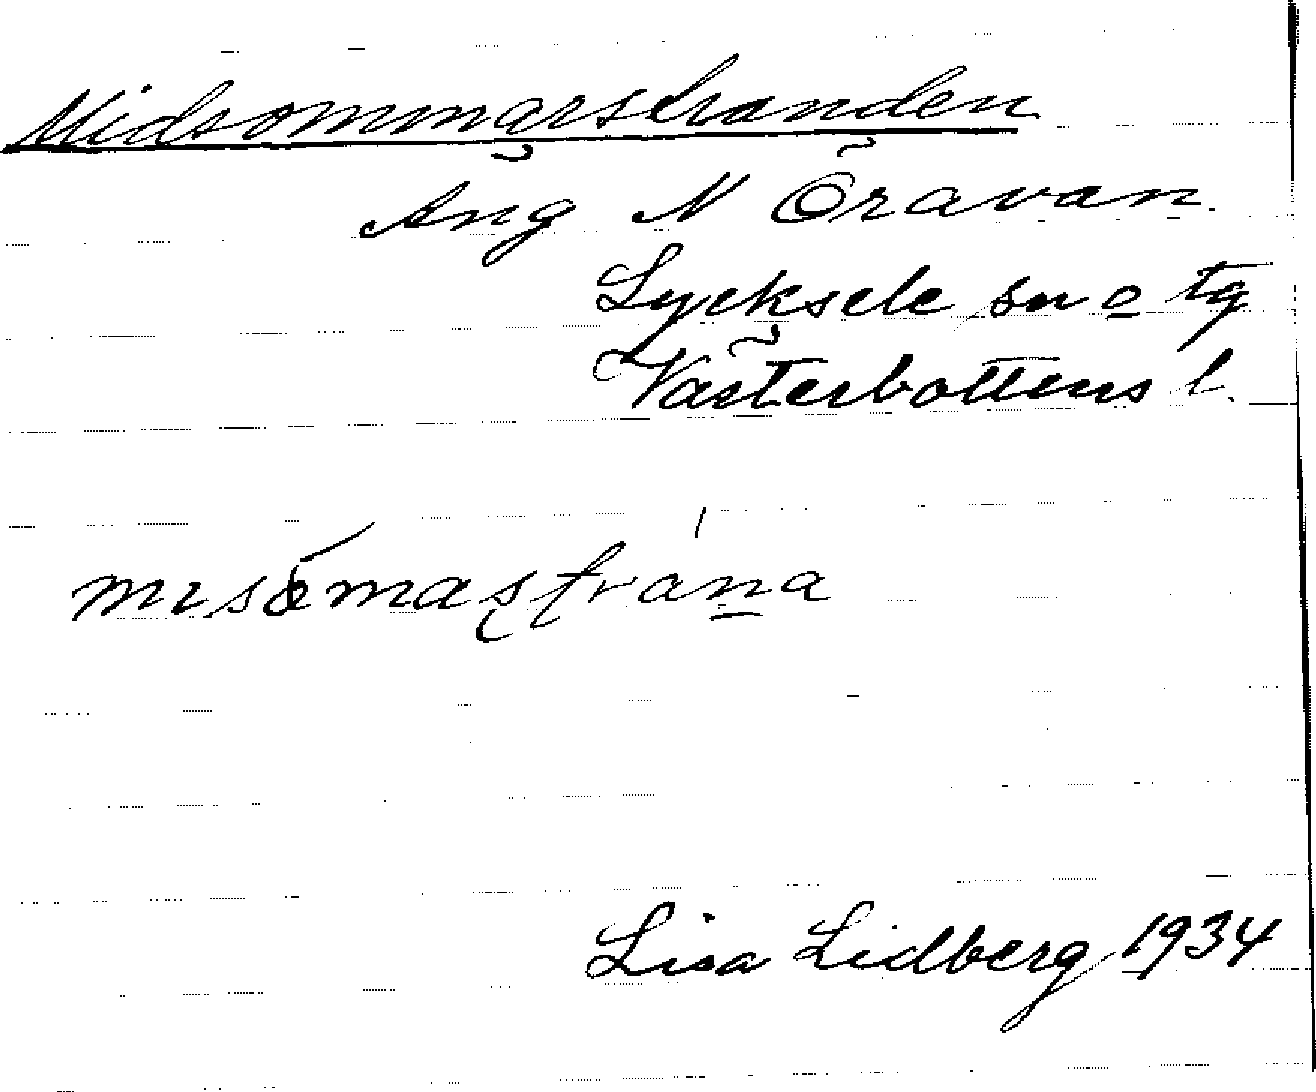 Midsommarstranden
Äng N Öråvan.
Lycksele sn o tg
Västerbottens l.
Lisa Lidberg 1934